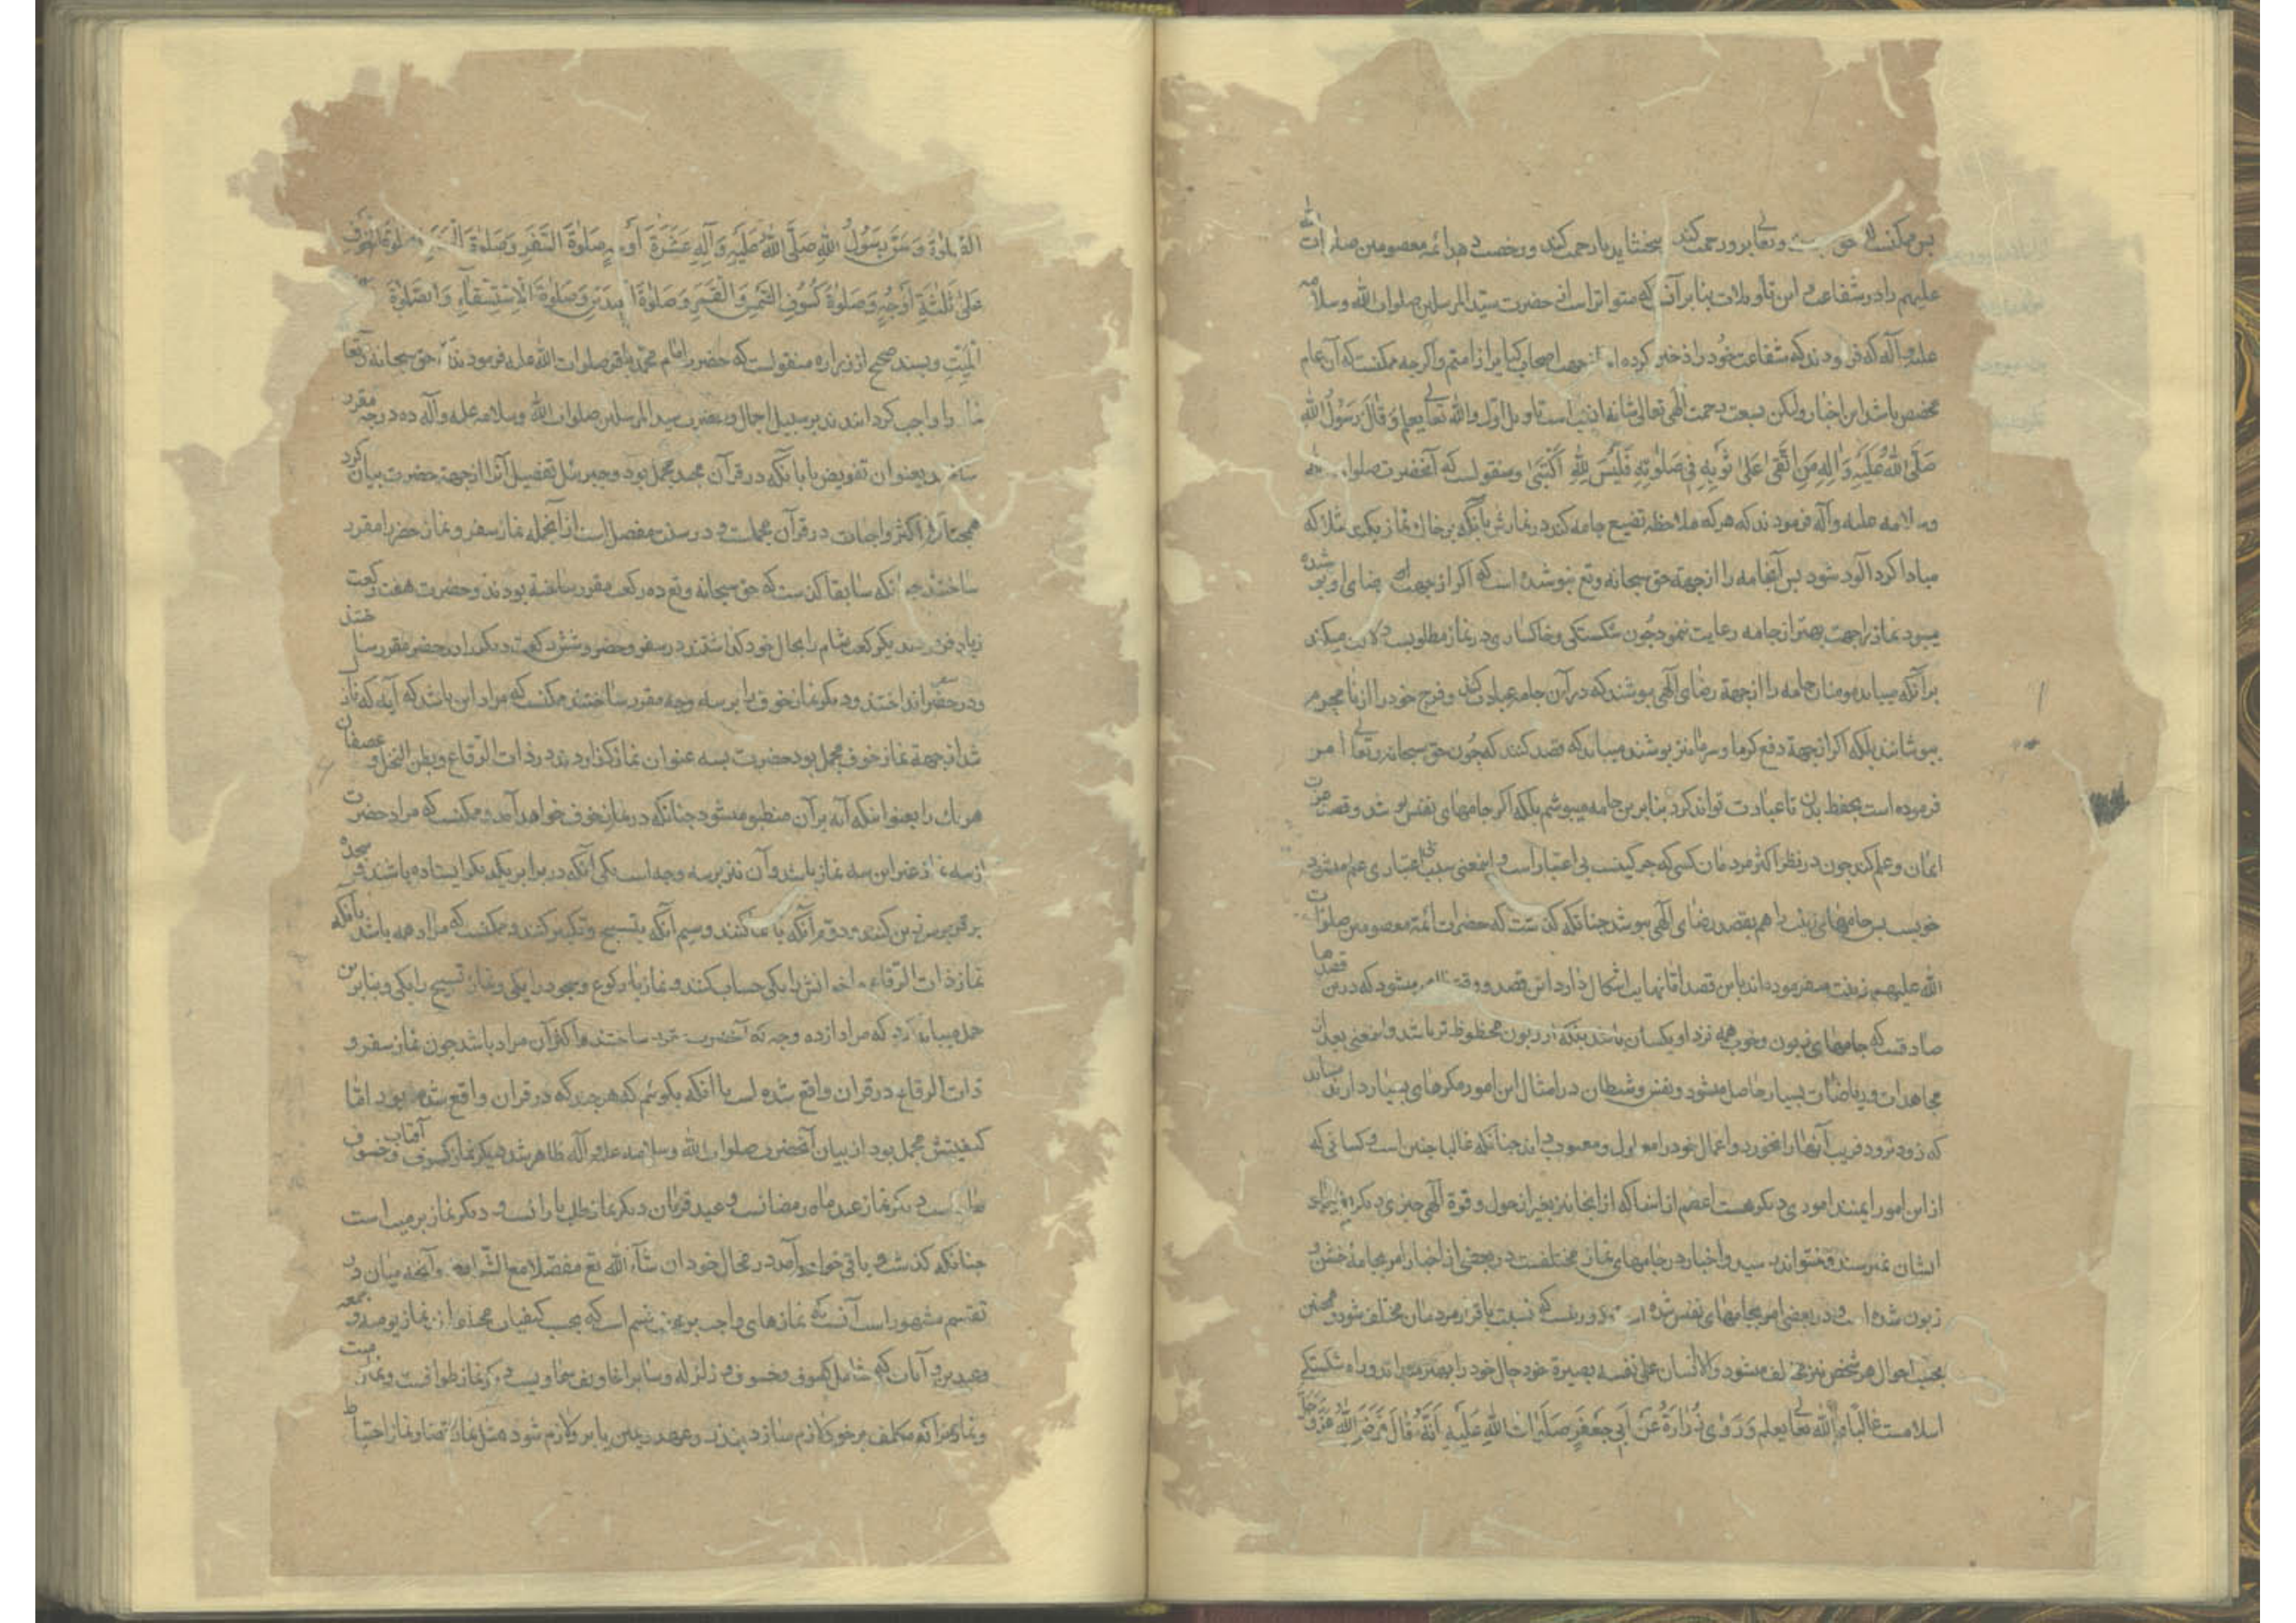 پس ممکنست که حق و تعالی برو رحمت کند بخشاید یا رحمت کند و رخصت دهد ائمه معصومین صلوات الله
علیهم را در شفاعت و این تأویلات بنا بر آنست که متواتر است از حضرت سید المرسلین صلوات الله وسلامه
علیه وآله که فرمودند که شفاعت خود را ذخیره کرده‌ام از جهت اصحاب کبایر از امتم واکرچه ممکنست که آن عام
مخصص باشد باین اخبار ولیکن بسعت رحمت الهی تعالی شانه انسب است تاویل اول والله تعالی یعلم وَقَالَ رَسُولُ اللهِ
صَلَّى اللهُ عَلَيْهِ وَآلِهِ مَنِ اتَّقَى عَلَى ثَوْبِهِ فِي صَلَوتِهِ فَلَيْسَ لِلّهِ اكْتَسَى ومنقولست که آنحضرت صلوات الله
وسلامه علیه وآله فرمودند که هر که ملاحظه تضییع جامه کند در نمازش بآنکه بر خاك نماز نکند مثلا که
مبادا کرد آلود شود پس آنجامه را از جهة حق سبحانه وتع نپوشیده است که اکر از جهت رضای او پوشیده
میبود نماز را جهت بهتر از جامه رعایت مینمود چون شکستکی وخاکساری در نماز مطلوبست دلالت میکند
بر آنکه میباید مومنان جامه را از جهة رضای الهی بپوشند که در آن جامه عبادت کنند وفرج خود را از نامحرم
بپوشانند بلکه اکر از جهة دفع کرما وسرما نیز بپوشند میباید که قصد کنند که چون حق سبحانه وتعالی امر
فرموده است بحفظ بدن تا عبادت تواند کرد بنا برین جامه میپوشم بلکه اکر جامهای نفیس پوشد وقصد عزت
ایمان وعلم کند چون در نظر اکثر مردمان کسی که چرکینست بی اعتبار است واینمعنی سبب بی اعتباری علم میشود
خوبست پس جامهای زینت را هم بقصد رضای الهی بپوشد چنانکه کذشت که حضرات ائمه معصومین صلوات
الله علیهم زینت میفرموده‌اند باین قصد اما نهایت اشکال دارد این قصد و وقتی ظاهر میشود که درین قصدها
صادقست که جامهای زبون وخوب همه نزد او یکسان باشد بلکه از زبون محظوظ تر باشد واینمعنی بعد از
مجاهدات وریاضات بسیار حاصل میشود ونفس وشیطان در امثال این امور مکرهای بسیار دارند میباید
که زود نرود فریب آنها را نخورد واعمال خود را معلول ومعیوب داند چنانکه غالبا چنین است وکسانی که
از این امور ایمنند اموری دیکر هست اعظم از اینها که از آنجا نیز بغیر از حول وقوة الهی چیزی دیکر بفریاد
ایشان نمیرسد ونمیتواند رسید واخبار در جامهای نماز مختلفست در بعضی از اخبار امر بجامه خشن و
زبون شده است ودر بعضی امر بجامهای نفیس شده است که نسبت بافراد مردمان مختلف شود وهمچنین
بحسب احوال هر شخص نیز مختلف میشود والانسان علی نفسه بصیرة خود حال خود را بهتر میداند وراه شکستکی
اسلامست غالبًا والله تعالی یعلم وَرَوَى زُرَارَةُ عَنْ أَبِي جَعْفَرٍ صَلَوَاتُ اللهِ عَلَيْهِ أَنَّهُ قَالَ فَرَضَ اللهُ عَزَّ وَجَلَّ
الصَّلوٰةَ وَسَنَّ رَسُولُ اللهِ صَلَّى اللهُ عَلَيْهِ وَآلِهِ عَشَرَةَ أَوْجُهٍ صَلوٰةَ السَّفَرِ وَصَلوٰةَ الْحَضَرِ وَصَلوٰةَ الْخَوْفِ
عَلَى ثَلٰثَةِ أَوْجُهٍ وَصَلوٰةَ كُسُوفِ الشَّمْسِ وَالْقَمَرِ وَصَلوٰةَ الْعِيدَيْنِ وَصَلوٰةَ الْإِسْتِسْقَاءِ وَالصَّلوٰةَ
الْمَيِّتِ وبسند صحیح از زراره منقولست که حضرت امام محمد باقر صلوات الله علیه فرمودند که حق سبحانه وتعا
نماز را واجب کردانیدند بر سبیل اجمال وحضرت سید المرسلین صلوات الله وسلامه علیه وآله ده درجه مقرر
ساختند بعنوان تفویض یا بآنکه در قرآن مجید مجمل بود وجبرئیل تفصیل آنرا از جهة حضرت بیان کرد
همچنانکه اکثر واجبات در قرآن مجملست ودر سنت مفصل است از آنجمله نماز سفر ونماز حضر را مقرر
ساختند چنانکه سابقا کذشت که حق سبحانه وتع ده رکعت مقرر ساخته بودند وحضرت هفت رکعت
زیاد فرمودند یکرکعت شام را بحال خود کذاشتند در سفر وحضر وشش رکعت دیکر را در حضر مقرر ساختند
ودر سفر انداختند ودیکر نماز خوف را بر سه وجه مقرر ساختند ممکنست که مراد این باشد که آیه که نازل
شد از جهة نماز خوف مجمل بود حضرت بسه عنوان نماز کذاردند در ذات الرقاع وبطن النخل وعصفان
هر یك را بعنوانیکه آیه بر آن منطبق میشود چنانکه در نماز خوف خواهد آمد وممکنست که مراد حضرت
از سه نماز غیر این سه نماز باشد وآن نیز بر سه وجه است یکی آنکه در برابر یکدیکر ایستاده باشند وسجده
بر قربوس زین کنند ودوم آنکه بایما کنند وسیم آنکه بتسبیح وتکبیر کنند وممکنست که مراد همه باشد بآنکه
نماز ذات الرقاع واخوانش را یکی حساب کنند ونماز با رکوع وسجود را یکی ونماز تسبیح را یکی وبنا برین
حمل میباید کرد که مراد از ده وجه که آنحضرت مقرر ساختند اکثر آن مراد باشد چون نماز سفر و
ذات الرقاع در قرآن واقع شده است یا آنکه بکوئیم که هر چند که در قران واقع شده بود اما
کیفیتش مجمل بود از بیان آنحضرت صلوات الله وسلامه علیه وآله ظاهر شد دیکر نماز کسوف آفتاب وخسوف
ماه است دیکر نماز عید ماه رمضانست وعید قربان دیکر نماز طلب بارانست ودیکر نماز بر میت است
چنانکه کذشت وباقی خواهد آمد در محال خود ان شآء الله تع مفصلا مع الشرایط وآنچه میان در
تقسیم مشهور است آنست که نمازهای واجب بر چند قسم است که بحسب کیفیات مختلفه‌اند از نماز یومیه وجمعه
وعیدین وآیات که شامل کسوف وخسوف وزلزله وسایر اخاویف سماویست ودیکر نماز طوافست ونماز میت
ونمازیرا که مکلف بر خود لازم سازد بنذر وعهد ویمین یا بر او لازم شود مثل نماز قضا ونماز احتیاط